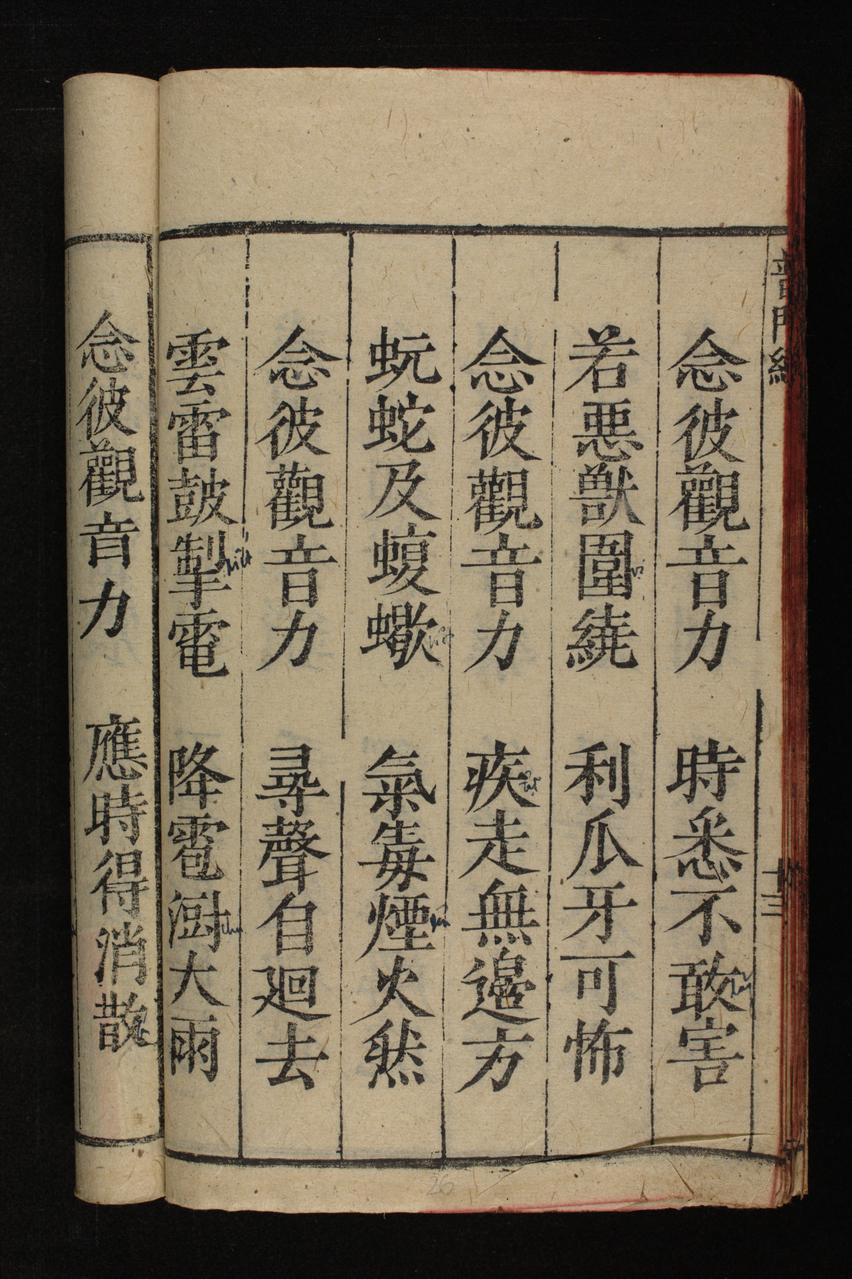 普門經
十三
念彼觀音力 時悉不敢害
若惡獸圍繞 利瓜牙可怖
念彼觀音力 疾走無邊方
蚖蛇及蝮蠍 氣毒煙火然
念彼觀音力 尋聲自廻去
雲雷鼓掣電 降雹澍大雨
念彼觀音力 應時得消散
26